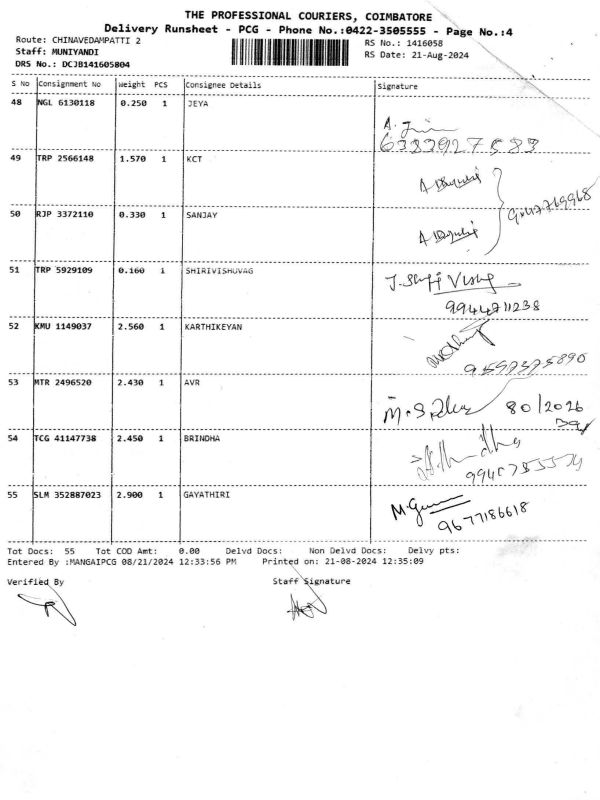 THE PROFESSIONAL COURIERS, COIMBATORE
Delivery Runsheet - PCG - Phone No.:0422-3505555 - Page No.:4
Route: CHINAVEDAMPATTI 2
RS No.: 1416058
Staff: MUNIYANDI
RS Date: 21-Aug-2024
DRS No.: DCJB141605804
S No Consignment No Weight PCS Consignee Details Signature
48 NGL 6130118 0.250 1 JEYA
49 TRP 2566148 1.570 1 KCT
50 RJP 3372110 0.330 1 SANJAY
51 TRP 5929109 0.160 1 SHIRIVISHUVAG
9944711238
52 KMU 1149037 2.560 1 KARTHIKEYAN
53 MTR 2496520 2.430 1 AVR
80/2026
54 TCG 41147738 2.450 1 BRINDHA
55 SLM 352887023 2.900 1 GAYATHIRI
9677186618
Tot Docs: 55 Tot COD Amt: 0.00 Delvd Docs: Non Delvd Docs: Delvy pts:
Entered By :MANGAIPCG 08/21/2024 12:33:56 PM Printed on: 21-08-2024 12:35:09
Verified By Staff Signature